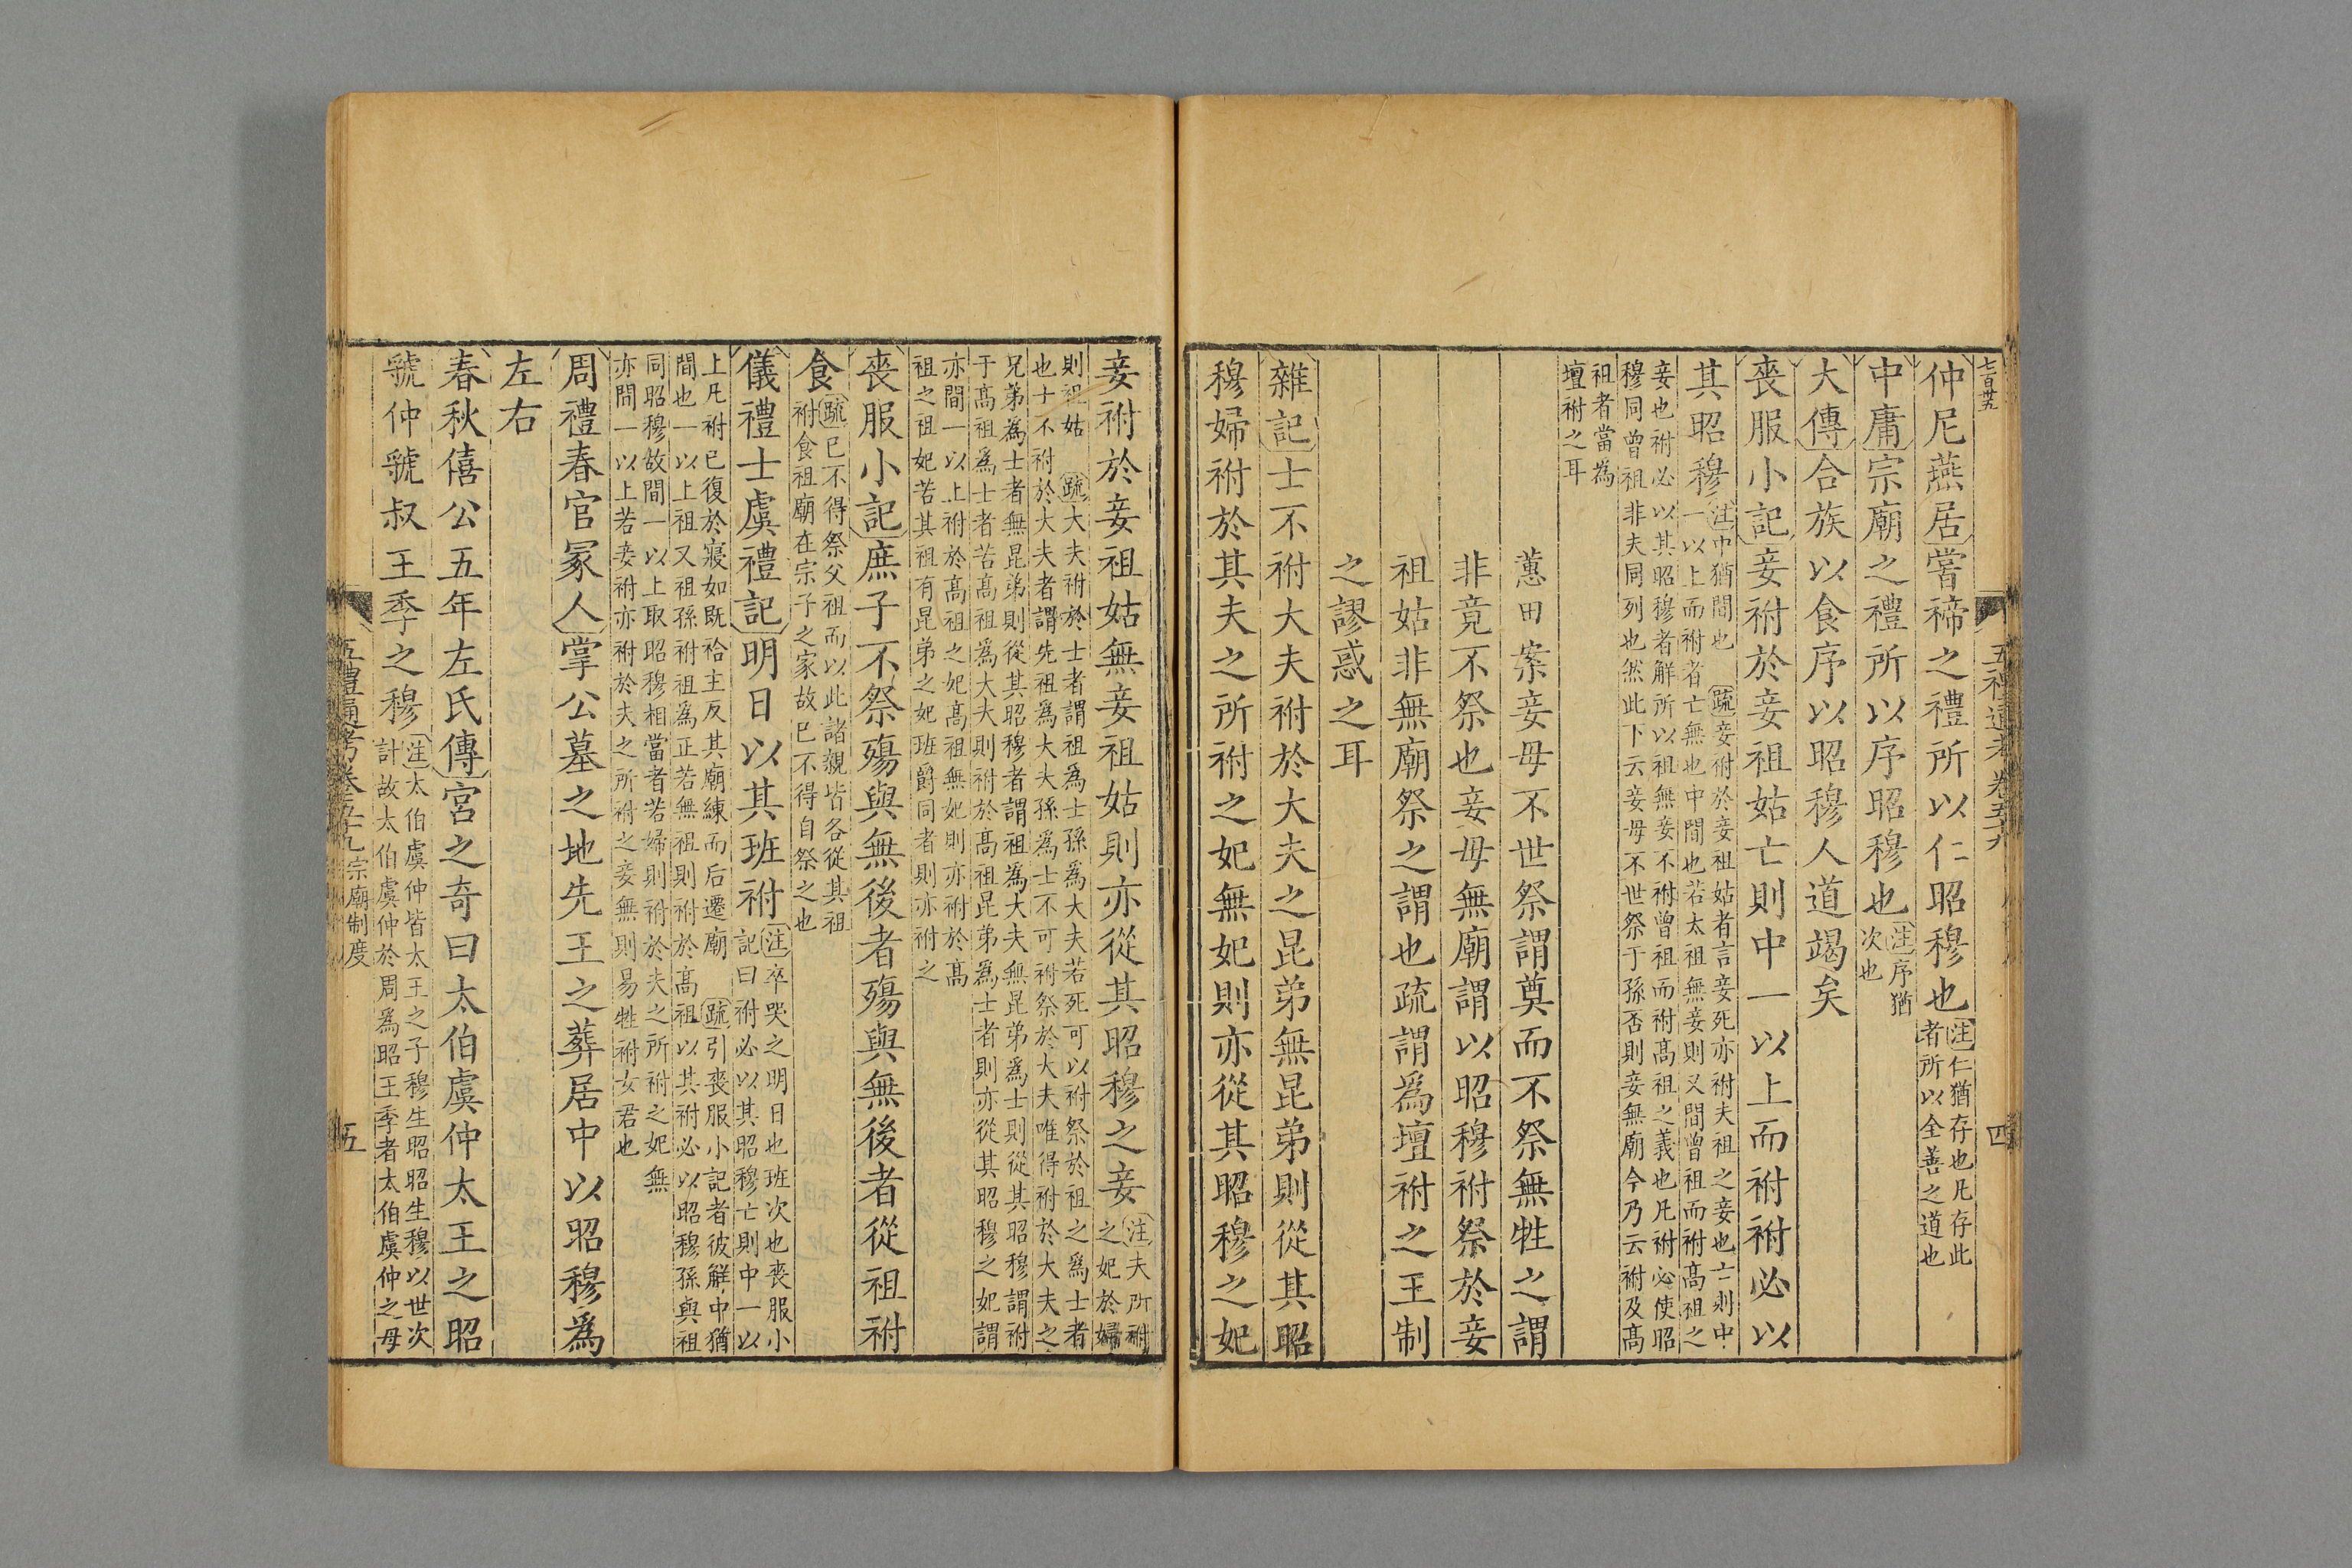 七百廿五
五禮通考卷五十九
四
仲尼燕居嘗禘之禮所以仁昭穆也注仁猶存也凡存此
者所以全善之道也
中庸宗廟之禮所以序昭穆也注序猶
次也
大傳合族以食序以昭穆人道竭矣
喪服小記妾祔於妾祖姑亡則中一以上而祔祔必以
其昭穆注中猶間也 疏妾祔於妾祖姑者言妾死亦祔夫祖之妾也亡則中
一以上而祔者亡無也中間也若太祖無妾則又間曾祖而祔高祖之
妾也祔必以其昭穆者解所以祖無妾不祔曾祖而祔高祖之義也凡祔必使昭
穆同曾祖非夫同列也然此下云妾母不世祭于孫否則妾無廟今乃云祔及高
祖者當為
壇祔之耳
蕙田案妾母不世祭謂奠而不祭無牲之謂
非竟不祭也妾母無廟謂以昭穆祔祭於妾
祖姑非無廟祭之謂也疏謂爲壇祔之王制
之謬惑之耳
雜記士不祔大夫祔於大夫之昆弟無昆弟則從其昭
穆婦祔於其夫之所祔之妃無妃則亦從其昭穆之妃
妾祔於妾祖姑無妾祖姑則亦從其昭穆之妾注夫所祔
之妃於婦
則祖姑 疏大夫祔於士者謂祖爲士孫爲大夫若死可以祔祭於祖之爲士者
也士不祔於大夫者謂先祖爲大夫孫爲士不可祔祭於大夫唯得祔於大夫之
兄弟為士者無昆弟則從其昭穆者謂祖爲大夫無昆弟爲士則從其昭穆謂祔
于高祖爲士者若高祖爲大夫則祔於高祖昆弟為士者則亦從其昭穆之妃謂
亦間一以上祔於高祖之妃高祖無妃則亦祔於高
祖之祖妃若其祖有昆弟之妃班爵同者則亦祔之
喪服小記庶子不祭殤與無後者殤與無後者從祖祔
食疏已不得祭父祖而以此諸親皆各從其祖
祔食祖廟在宗子之家故已不得自祭之也
儀禮士虞禮記明日以其班祔注卒哭之明日也班次也喪服小
記曰祔必以其昭穆亡則中一以
上凡祔已復於寢如既祫主反其廟練而后遷廟 疏引喪服小記者彼解中猶
間也一以上祖又祖孫祔祖爲正若無祖則祔於高祖以其祔必以昭穆孫與祖
同昭穆故間一以上取昭穆相當者若婦則祔於夫之所祔之妃無
亦間一以上若妾祔亦祔於夫之所祔之妾無則易牲祔女君也
周禮春官冢人掌公墓之地先王之葬居中以昭穆爲
左右
春秋僖公五年左氏傳宮之奇曰太伯虞仲太王之昭
虢仲虢叔王季之穆注太伯虞仲皆太王之子穆生昭昭生穆以世次
計故太伯虞仲於周爲昭王季者太伯虞仲之母
五禮通考卷五十九宗廟制度
五